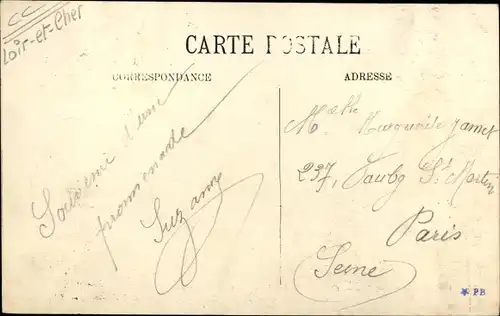 CC
Loir-et-Cher
CARTE POSTALE
CORRESPONDANCE
ADRESSE
Souvenir d'une
promenade
Suzanne
Melle Marguerite Jamet
237, Faubg St Martin
Paris
Seine
PB